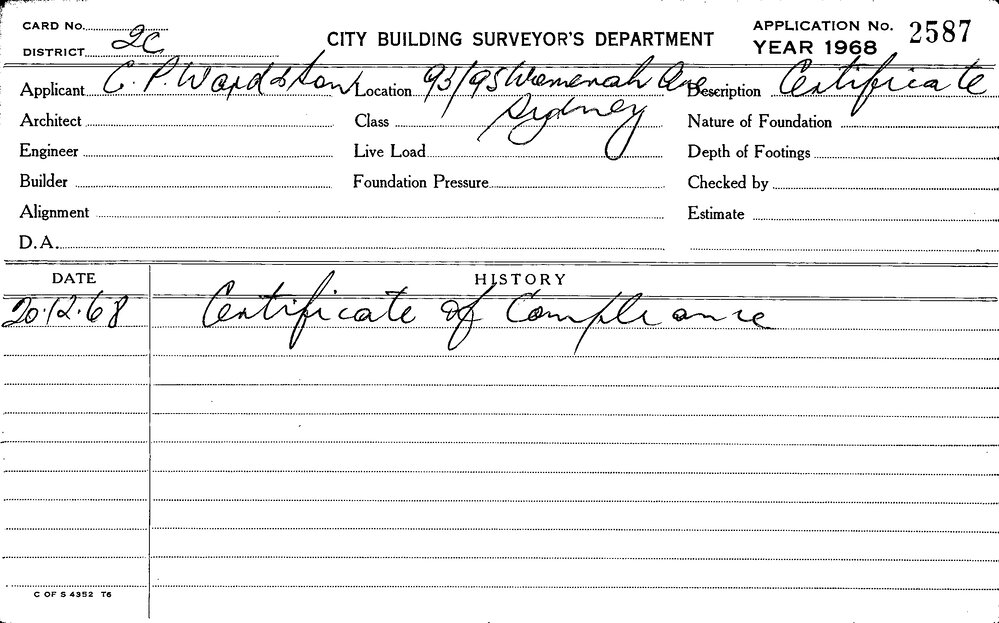 CARD No.
DISTRICT 2C
CITY BUILDING SURVEYOR'S DEPARTMENT
APPLICATION No. 2587
YEAR 1968
Applicant C. P. Ward & Son Location 93/95 Womerah Ave Description Certificate
Architect Class Sydney Nature of Foundation
Engineer Live Load Depth of Footings
Builder Foundation Pressure Checked by
Alignment Estimate
D.A.
DATE HISTORY
20.12.68 Certificate of Compliance
C OF S 4352 T6